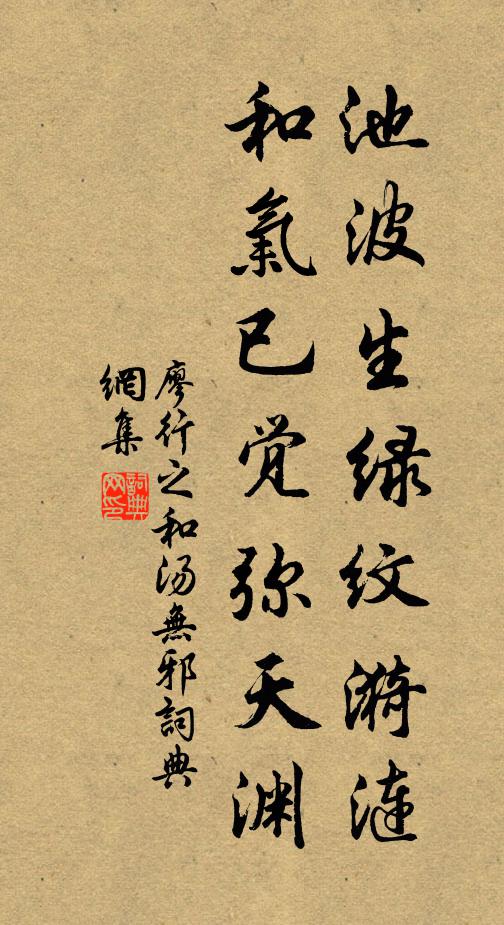 池波生绿纹漪涟
和氣已觉弥天渊
廖行之和汤無邪詞典
網集
詞典網印